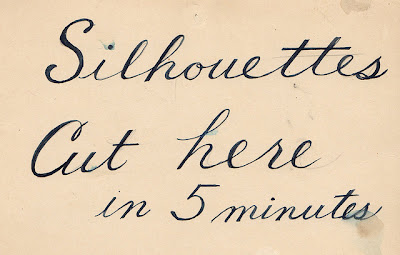 Silhouettes
Cut here
in 5 minutes